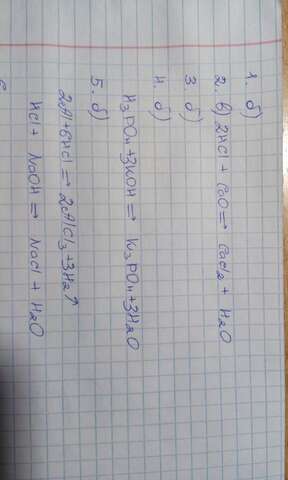 1. б)
2. в) 2HCl + CaO = CaCl₂ + H₂O
3 б)
4. б)
H₃PO₄+3KOH = K₃PO₄+3H₂O
5. б)
2Al+6HCl = 2AlCl₃+3H₂↑
HCl + NaOH = NaCl + H₂O